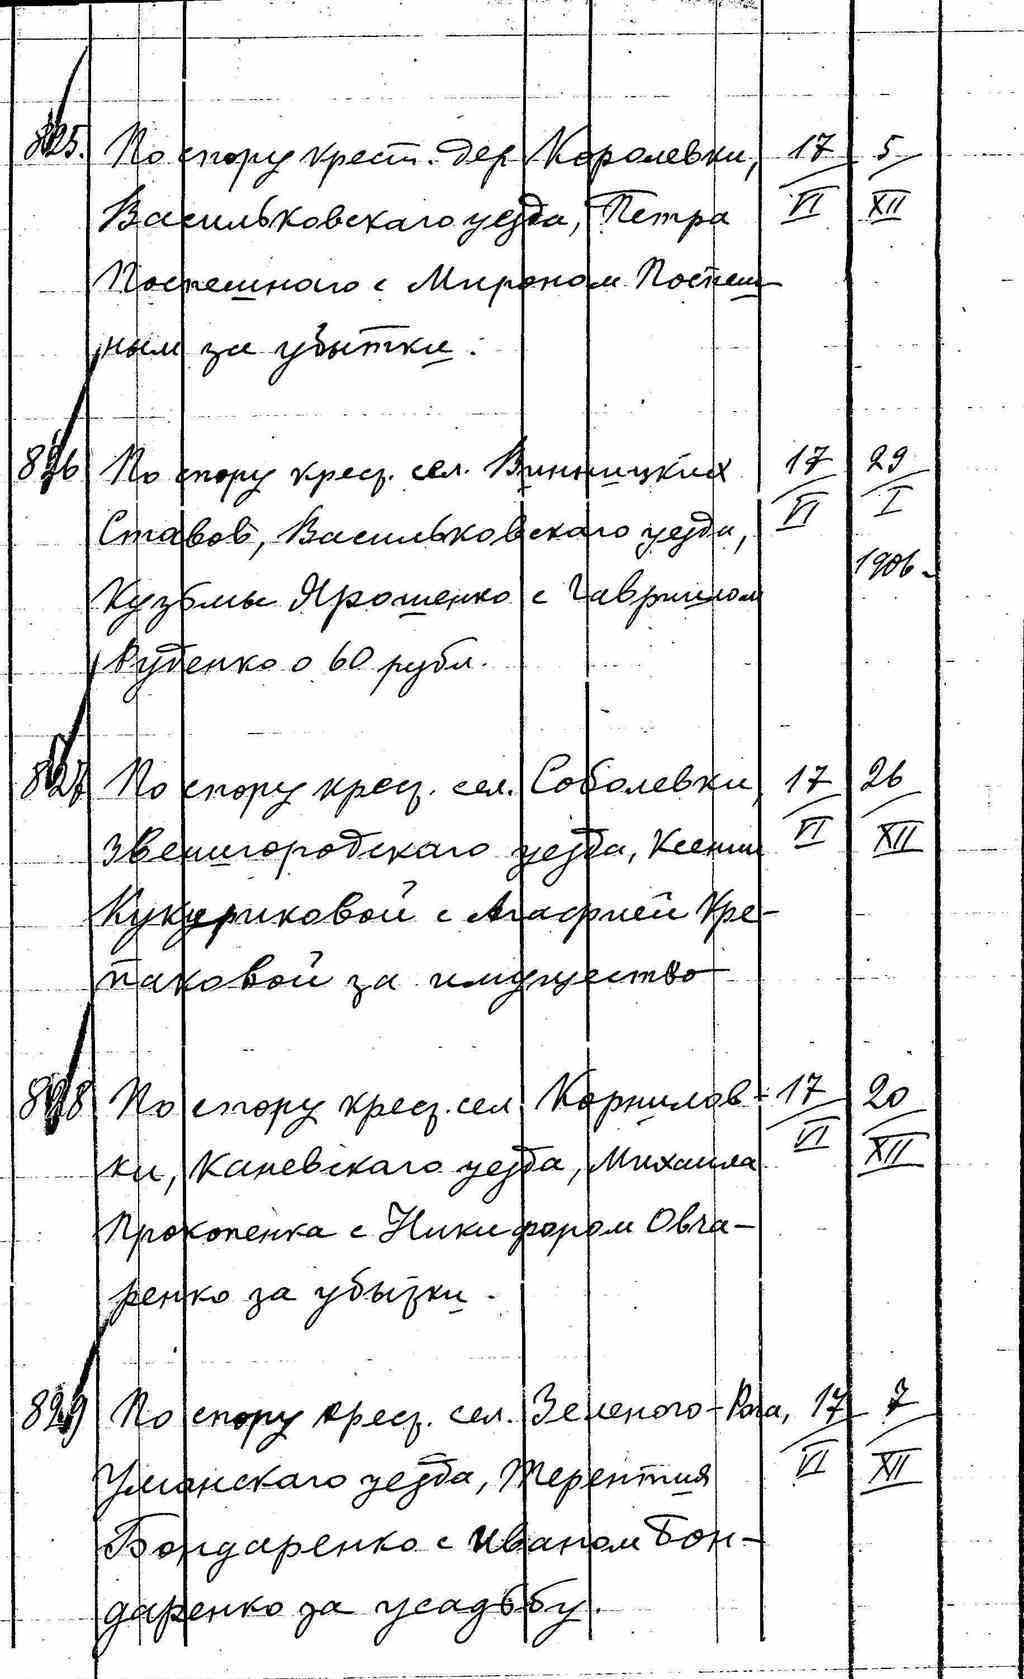 825. По спору крест. дер. Королевки, 17/VI 5/XII
Васильковскаго уезда, Петра
Поспешного с Мироном Поспеш-
ным за убытки.
826 По спору крест. сел. Винницких 17/VI 29/I
Ставов, Васильковскаго уезда, 1906.
Кузьмы Ярошенко с Гавриилом
Руденко о 60 рубл.
827 По спору крест. сел. Соболевки, 17/VI 26/XII
Звенигородскаго уезда, Ксении
Кукуриковой с Агафией Кре-
паковой за имущество
828 По спору крест. сел. Корнилов- 17/VI 20/XII
ки, Каневскаго уезда, Михаила
Прокопенка с Никифором Овча-
ренко за убытки.
829 По спору крест. сел. Зеленого-Рога, 17/VI 7/XII
Уманскаго уезда, Терентия
Бондаренко с Иваном Бон-
даренко за усадьбу.